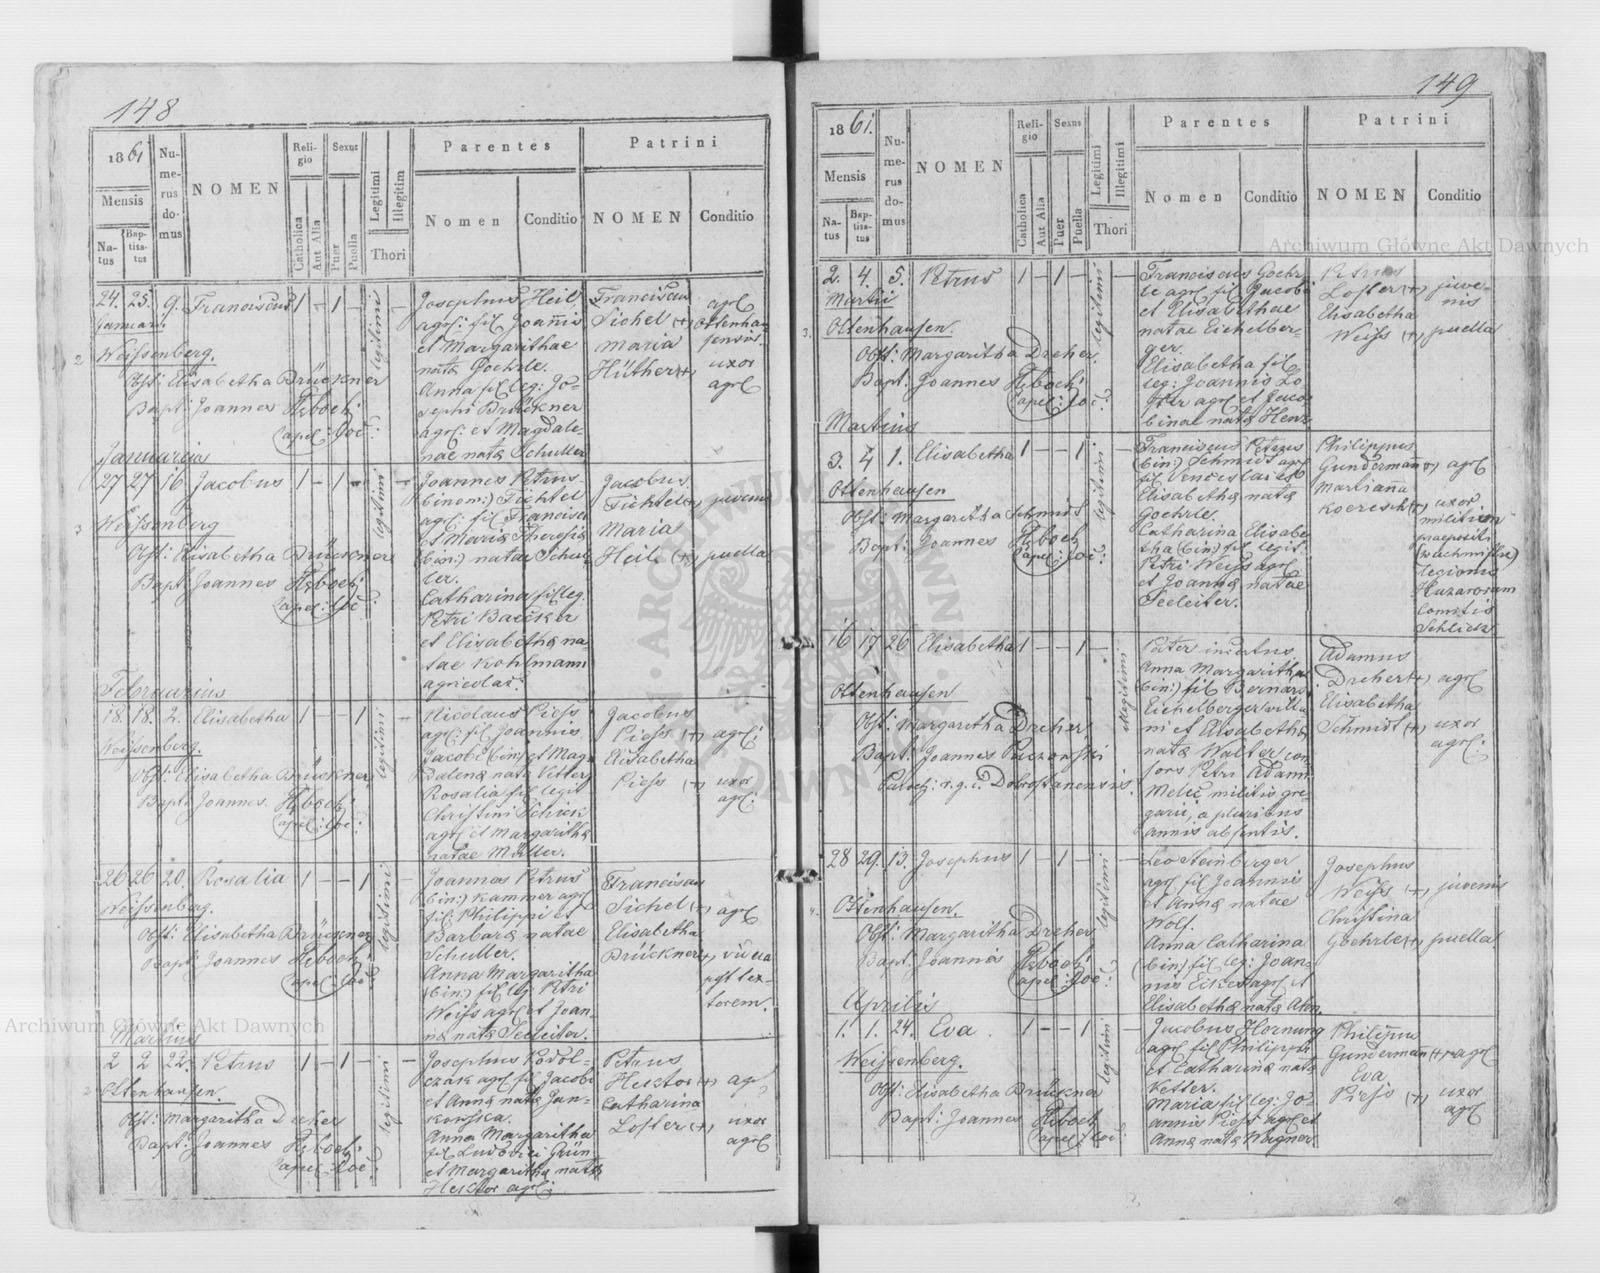 148
1861
Mensis
Natus
Baptisatus
Numerus domus
NOMEN
Religio
Catholica
Aut Alia
Sexus
Puer
Puella
Legitimi
Illegitim
Thori
Parentes
Nomen
Conditio
Patrini
NOMEN
Conditio
24. 25. 9. Franciscus 1 - 1 - legitimi
Januarii
Weissenberg.
Obst: Elisabetha Brückner
Bapt: Joannes
Capel: loc:
Josephus Heil
agrl: fil Joannis
et Margarithae
natae Goehrle.
Anna fil leg: Jo-
sephi Brückner
agrl: et Magdale-
nae natae Schuller
Franciscus
Sichel (+) agrl
Ottenhau
senens.
Maria
Hüther (+) uxor
agrl
Januarius
27 27 16. Jacobus 1 - 1 - legitimi
Weissenberg
Obst: Elisabetha Brückner
Bapt: Joannes
Capel: loc:
Joannes Petrus
(binom:) Tichtel
agrl: fil Francisci
et Mariae Theresiae
(bin:) natae Schul
ler.
Catharina fil leg.
Petri Baecker
et Elisabethae na-
tae Kohlmann
agricolae.
Jacobus
Tichtel (+) juvenis
Maria
Heil (+) puella
Februarius
18. 18. 2. Elisabetha 1 - - 1 legitimi
Weissenberg.
Obst: Elisabetha Brückner
Bapt: Joannes
Capel: loc:
Nicolaus Piess
agrl: fil Joannis
Jacobi (bin:) et Mag
dalenae natae Vetter
Rosalia fil legit
Christini Schick
agrl et Margarithae
natae Müller.
Jacobus
Piess (+) agrl:
Elisabetha
Piess (+) uxor
agrl:
26 26 20. Rosalia 1 - - 1 - legitimi
Weissenberg.
Obst: Elisabetha Brückner
Bapt: Joannes
Capel: loc:
Joannes Petrus
(bin:) Kammer agrl
fil: Philippi et
Barbarae natae
Schuller.
Anna Margaritha
(bin:) fil leg: Petri
Weiss agrl et Joan-
nae natae Seeleiter.
Franciscus
Sichel (+) agrl
Elisabetha
Brückner (+) vidua
pst tex-
torem.
Martius
2 2 22. Petrus 1 - 1 - legitimi -
Ottenhausen.
Obst: Margaritha Dreher
Bapt: Joannes
Capel: loc:
Josephus Podol-
czak agrl fil Jacobi
et Annae natae Jan-
Anna Margaritha
fil Ludovici Grün
et Margarithae natae
Hektor agrl:
Petrus
Hektor (+) agrl
Catharina
Loster (+) uxor
agrl
149
1861.
Mensis
Natus
Baptisatus
Numerus domus
NOMEN
Religio
Catholica
Aut Alia
Sexus
Puer
Puella
Legitimi
Illegitimi
Thori
Parentes
Nomen
Conditio
Patrini
NOMEN
Conditio
2. 4. 5. Petrus 1 - 1 - legitimi -
Martii
Ottenhausen.
Obst: Margaritha Dreher.
Bapt: Joannes
Capel: loc:
Franciscus Goehr
le agrl fil Jacobi
et Elisabethae
natae Eichelber-
ger.
Elisabetha fil
leg: Joannis Lo-
ster agrl et Jaco-
binae natae Henz
Petrus
Loster (+) juve-
nis
Elisabetha
Weiss (+) puella
Martius
3. 4 1. Elisabetha 1 - - 1 legitimi -
Ottenhausen
Obst: Margaritha Schmidt
Bapt: Joannes
Capel: loc:
Franciscus Petrus
(bin:) Schmidt agrl
fil Venceslai et
Elisabethae natae
Goehrle.
Catharina Elisabe-
tha (bin:) fil legit:
Petri Weiss agrl
et Joannae natae
Seeleiter.
Philippus
Gundermann (+) agrl
Marianna
(+) uxor
militum
praepositi
(wachmister)
legionis
Huzarorum
Comitis
Schlick
16 17 26 Elisabetha 1 - - 1 - illegitimi
Ottenhausen
Obst: Margaritha Dreher
Bapt: Joannes
Paroch: r. g. c. Dobrostanensis.
Pater incertus,
Anna Margaritha
(bin:) fil Bernardi
Eichelberger villa
ni et Elisabethae
natae Walter con-
sors Petri Adami
militis gre-
garii, a pluribus
annis absentis.
Adamus
Dreher (+) agrl
Elisabetha
Schmidt (+) uxor
agrl:
28 29. 13. Josephus 1 - 1 - legitimi -
Ottenhausen.
Obst: Margaritha Dreher
Bapt: Joannes
Capel: loc:
Leo Steinberger
agrl fil Joannis
et Annae natae
Wolf.
Anna Catharina
(bin:) fil leg: Joan-
nis agrl et
Elisabethae natae
Josephus
Weiss (+) juvenis
Christina
Goehrle (+) puella
Aprilis
1. 1. 24. Eva 1 - - 1 legitimi -
Weissenberg.
Obst: Elisabetha Brückner
Bapt: Joannes
Capel: loc:
Jacobus Hornung
agrl fil Philippi
et Catharinae natae
Ketter.
Maria fil leg: Jo-
annis Piess agrl et
Annae natae Wagner
Philippus
Gundermann (+) agrl
Eva
Piess (+) uxor
agrl
Archiwum Główne Akt Dawnych
Archiwum Główne Akt Dawnych
ARCHIWUM GŁÓWNE AKT DAWNYCH